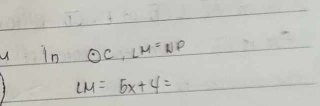 In ⊙C, LM=NP
LM= 5x+4=